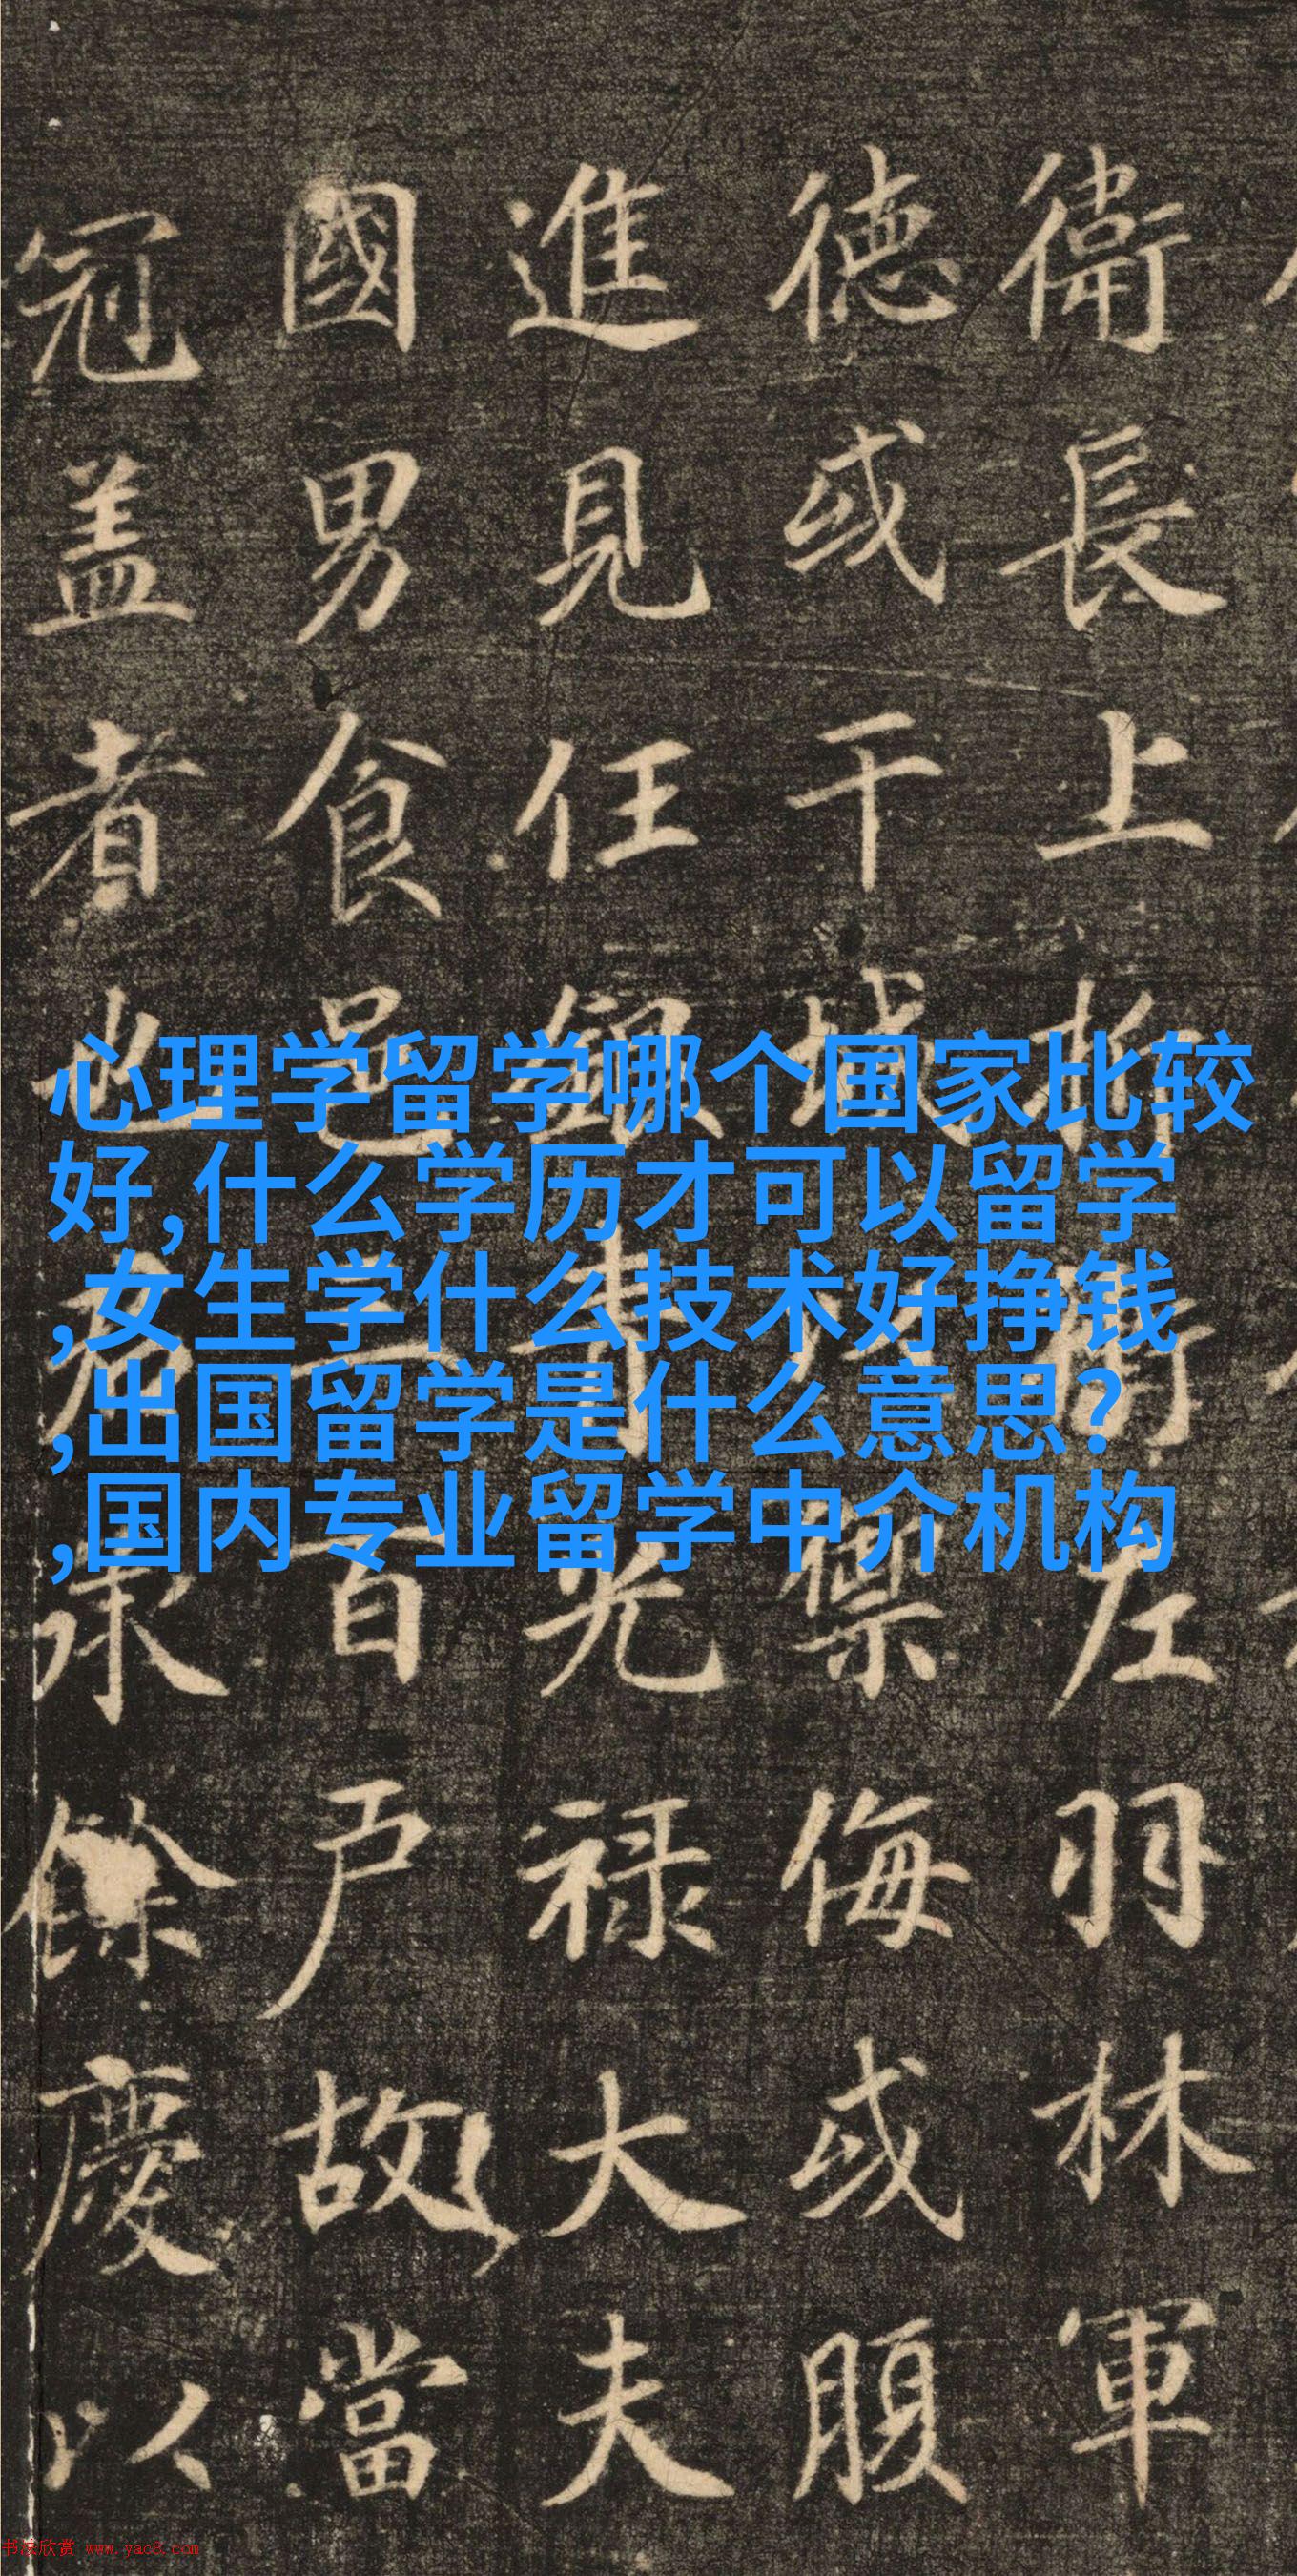 衛長上折衝左羽林軍
德或干城禦侮或腹
進見任銀青光禄大夫
國男食邑三百户故當
冠盖者也君承餘慶以
心理学留学哪个国家比较
好,什么学历才可以留学
,女生学什么技术好挣钱
,出国留学是什么意思?
,国内专业留学中介机构
书法欣赏 www.yac8.com